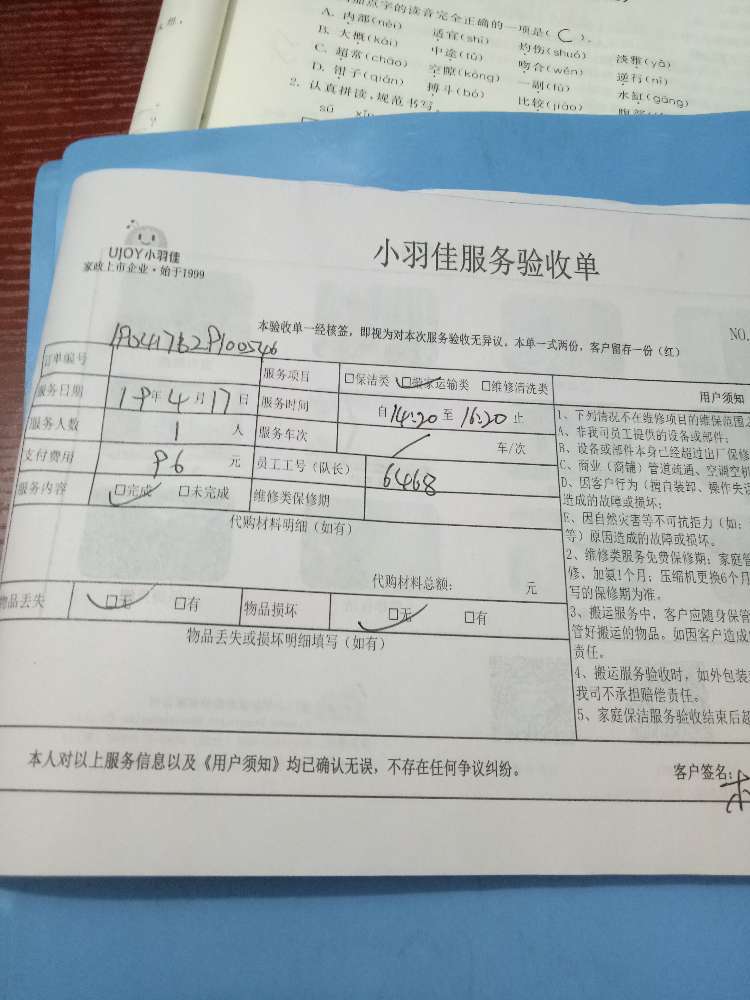 加点字的读音完全正确的一项是( C )。
A. 内部(nèi) 适宜(shì) 灼伤(shuó) 淡雅(yǎ)
B. 大概(kài) 中途(tú) 吻合(wěn) 逆行(nì)
C. 超常(chāo) 空隙(kòng) 一副(fù) 水缸(gāng)
D. 钳子(qián) 搏斗(bó) 比较(jiào)
2. 认真拼读,规范书写
sū
UJOY小羽佳
家政上市企业·始于1999
小羽佳服务验收单
本验收单一经核签，即视为对本次服务验收无异议。本单一式两份，客户留存一份（红）
NO.
订单编号
服务项目 □保洁类 □搬家运输类 □维修清洗类
用户须知
服务日期 19年4月17日 服务时间 自14:20至16:20止
服务人数 1 人 服务车次 车/次
支付费用 96 元 员工工号（队长） 6468
服务内容 □完成 □未完成 维修类保修期
代购材料明细（如有）
代购材料总额： 元
物品丢失 □无 □有 物品损坏 □无 □有
物品丢失或损坏明细填写（如有）
1、下列情况不在维修项目的维保范围
A、非我司员工提供的设备或部件.
B、设备或部件本身已经超过出厂保修
C、商业（商铺）管道疏通、空调空机
D、因客户行为（擅自装卸、操作失
造成的故障或损坏；
E、因自然灾害等不可抗拒力（如：
等）原因造成的故障或损坏。
2、维修类服务免费保修期：家庭管
修、加氨1个月；压缩机更换6个月
写的保修期为准。
3、搬运服务中，客户应随身保管
管好搬运的物品。如因客户造成
责任。
4、搬运服务验收时，如外包装
我司不承担赔偿责任。
5、家庭保洁服务验收结束后超
本人对以上服务信息以及《用户须知》均已确认无误，不存在任何争议纠纷。
客户签名：